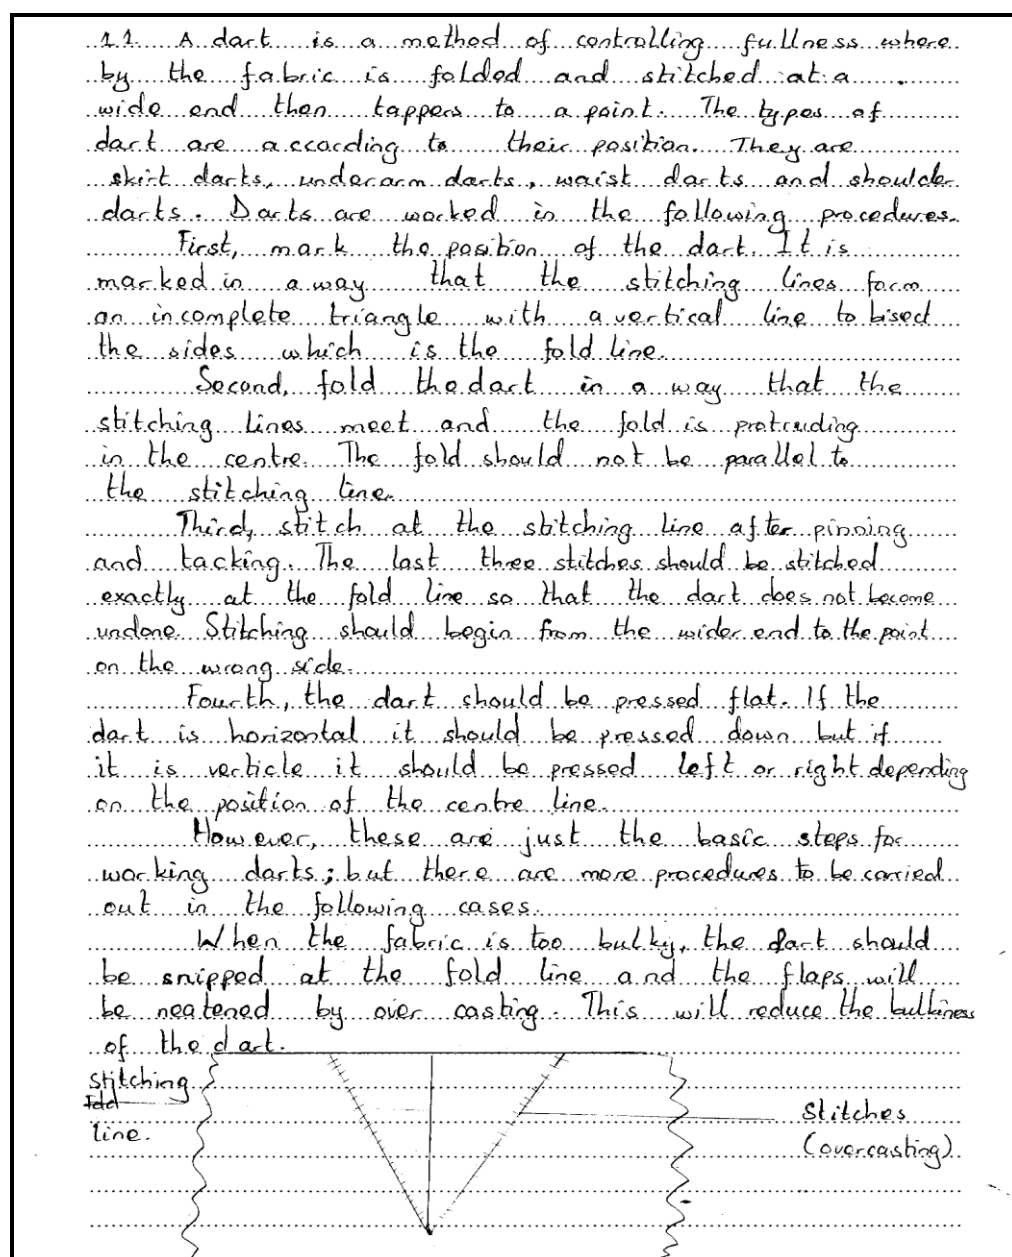 11. A dart is a method of controlling fullness where
by the fabric is folded and stitched at a
wide end then tappers to a point. The types of
dart are according to their position. They are
skirt darts, underarm darts, waist darts and shoulder
darts. Darts are worked in the following procedures.
First, mark the position of the dart. It is
marked in a way that the stitching lines form
an incomplete triangle with a vertical line to bisect
the sides which is the fold line.
Second, fold the dart in a way that the
stitching lines meet and the fold is protruding
in the centre. The fold should not be parallel to
the stitching line.
Third, stitch at the stitching line after pinning
and tacking. The last three stitches should be stitched
exactly at the fold line so that the dart does not become
undone. Stitching should begin from the wider end to the point
on the wrong side.
Fourth, the dart should be pressed flat. If the
dart is horizontal it should be pressed down but if
it is verticle it should be pressed left or right depending
on the position of the centre line.
However, these are just the basic steps for
working darts; but there are more procedures to be carried
out in the following cases.
When the fabric is too bulky, the dart should
be snipped at the fold line and the flaps will
be neatened by over casting. This will reduce the bulkiness
of the dart.
stitching
Fold
line.
Stitches
(overcasting)